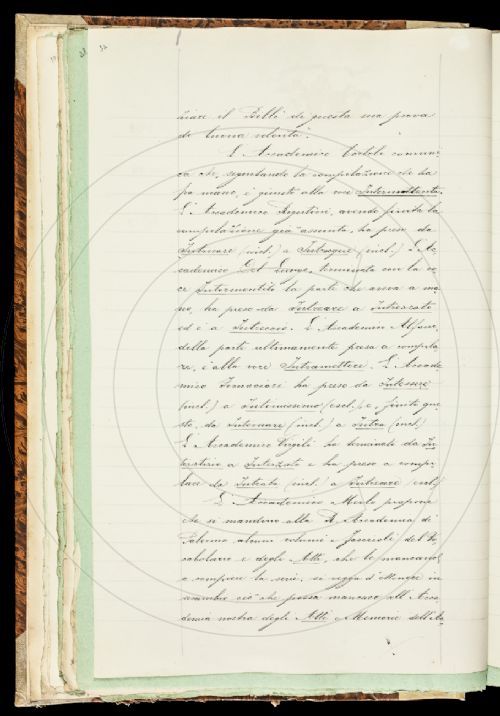 ziare il Bibli di questa sua prova
di buona volontà.
L'Accademico Tortoli comuni-
ca che, seguitando la compilazione che ha
fra mano, è giunto alla voce Intermettente.
L'Accademico Rigutini, avendo finita la
compilazione già assunta, ha preso da
(incl.) a (incl.) L'Ac-
cademico Del Lungo, terminata con la vo-
ce Intormentito la parte che aveva a ma-
no, ha preso da Intrecciare a
ed è a L'Accademico Alfani,
della parte ultimamente presa a compila-
re, è alla voce Intramettere. L'Accade-
mico ha preso da Intessere
(incl.) a (escl.) e, finito que-
sto, da Internare (incl.) a Intra (incl.)
L'Accademico Vergili ha terminato da In-
a e ha preso a compi-
lare da Intrata (incl.) a (escl.)
L'Accademico Milo propone
che si mandino alla R. Accademia di
Palermo alcuni volumi e fascicoli del Vo-
cabolario e degli Atti, che le mancano
a compiere la serie, si veggia d'ottenere in
ciò che possa mancare all'Acca-
demia nostra degli Atti e Memorie dell'Ac-